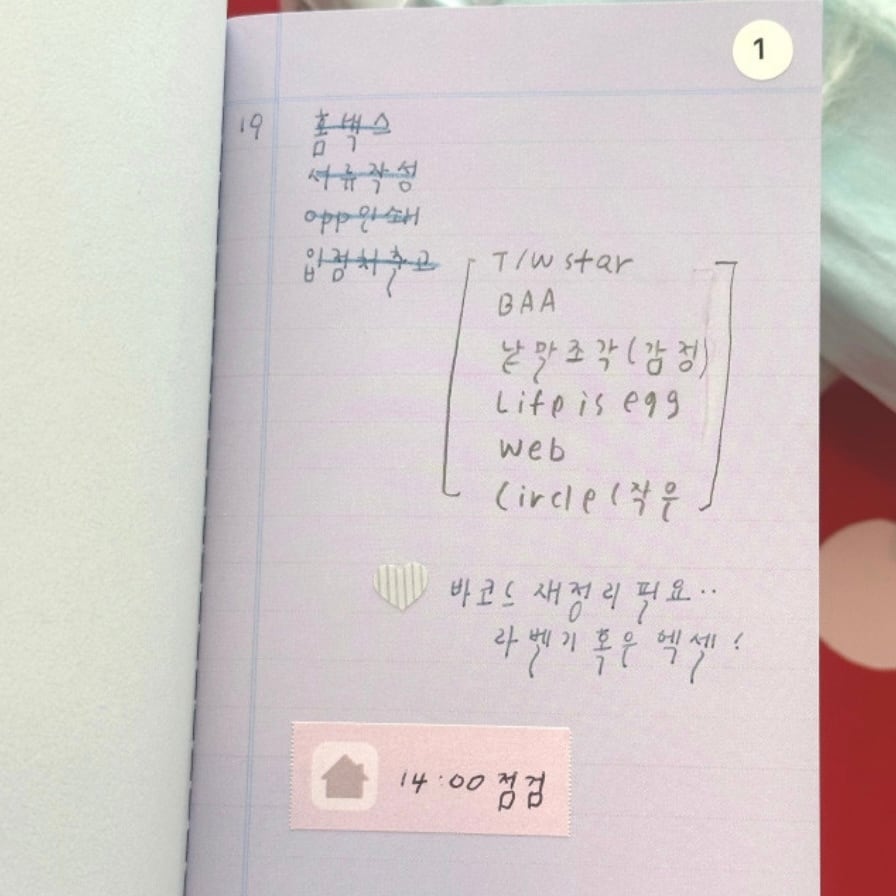 1
19 홈백스
서류작성
opp인쇄
입점처출고
T/W star
BAA
낱말조각(감정)
Life is egg
Web
Circle(작은
바코드 재정리 필요..
라벨기 혹은 엑셀!
14:00 점검